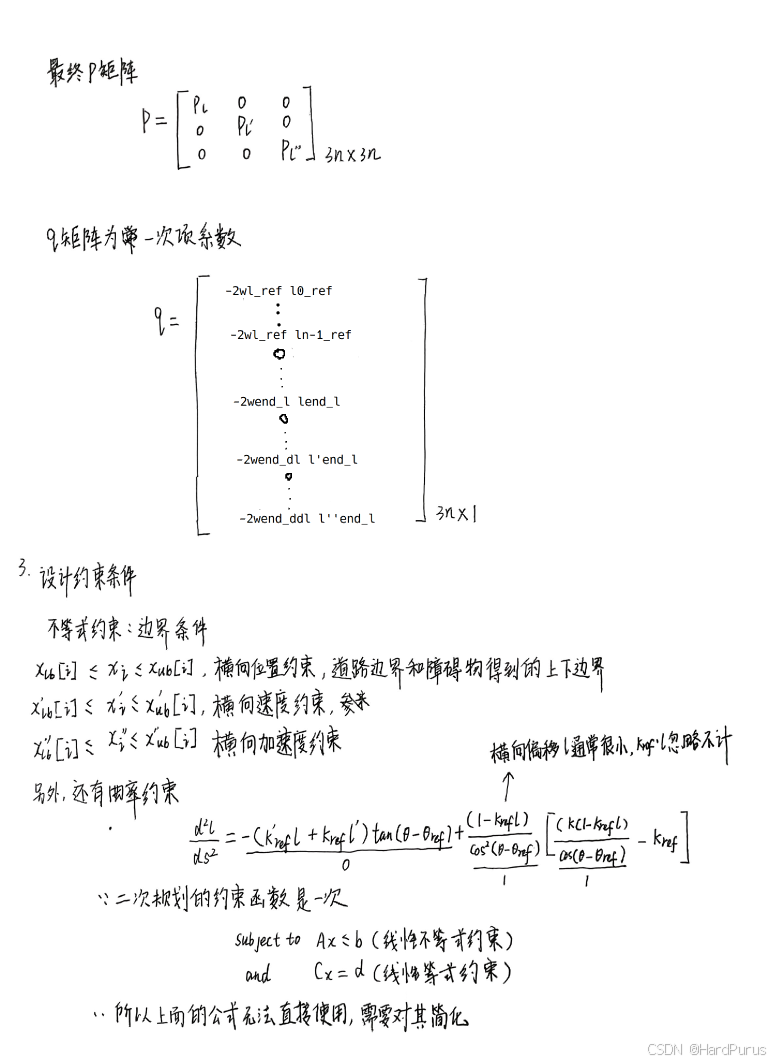 最终P矩阵
P = [ Pl 0 0
0 Pl' 0
0 0 Pl'' ] 3n×3n
q矩阵为 一次项系数
q = [
-2wl_ref l0_ref
⋮
-2wl_ref ln-1_ref
0
⋮
-2wend_l lend_l
0
⋮
-2wend_dl l'end_l
0
⋮
-2wend_ddl l''end_l
] 3n×1
3. 设计约束条件
不等式约束：边界条件
x_lb[i] ≤ x_i ≤ x_ub[i], 横向位置约束, 道路边界和障碍物得到的上下边界
x'_lb[i] ≤ x'_i ≤ x'_ub[i], 横向速度约束,
x''_lb[i] ≤ x''_i ≤ x''_ub[i] 横向加速度约束
横向偏移l通常很小, Kref·l忽略不计
另外, 还有曲率约束
d²l/ds² = -(K'ref l + Kref l') tan(θ-θref) + (1-Kref l)/cos²(θ-θref) [ (K(1-Kref l)/cos(θ-θref) - Kref ]
0 1 1
∵ 二次规划的约束函数是一次
subject to Ax ≤ b (线性不等式约束)
and Cx = d (线性等式约束)
∵ 所以上面的公式无法直接使用, 需要对其简化
CSDN @HardPurus